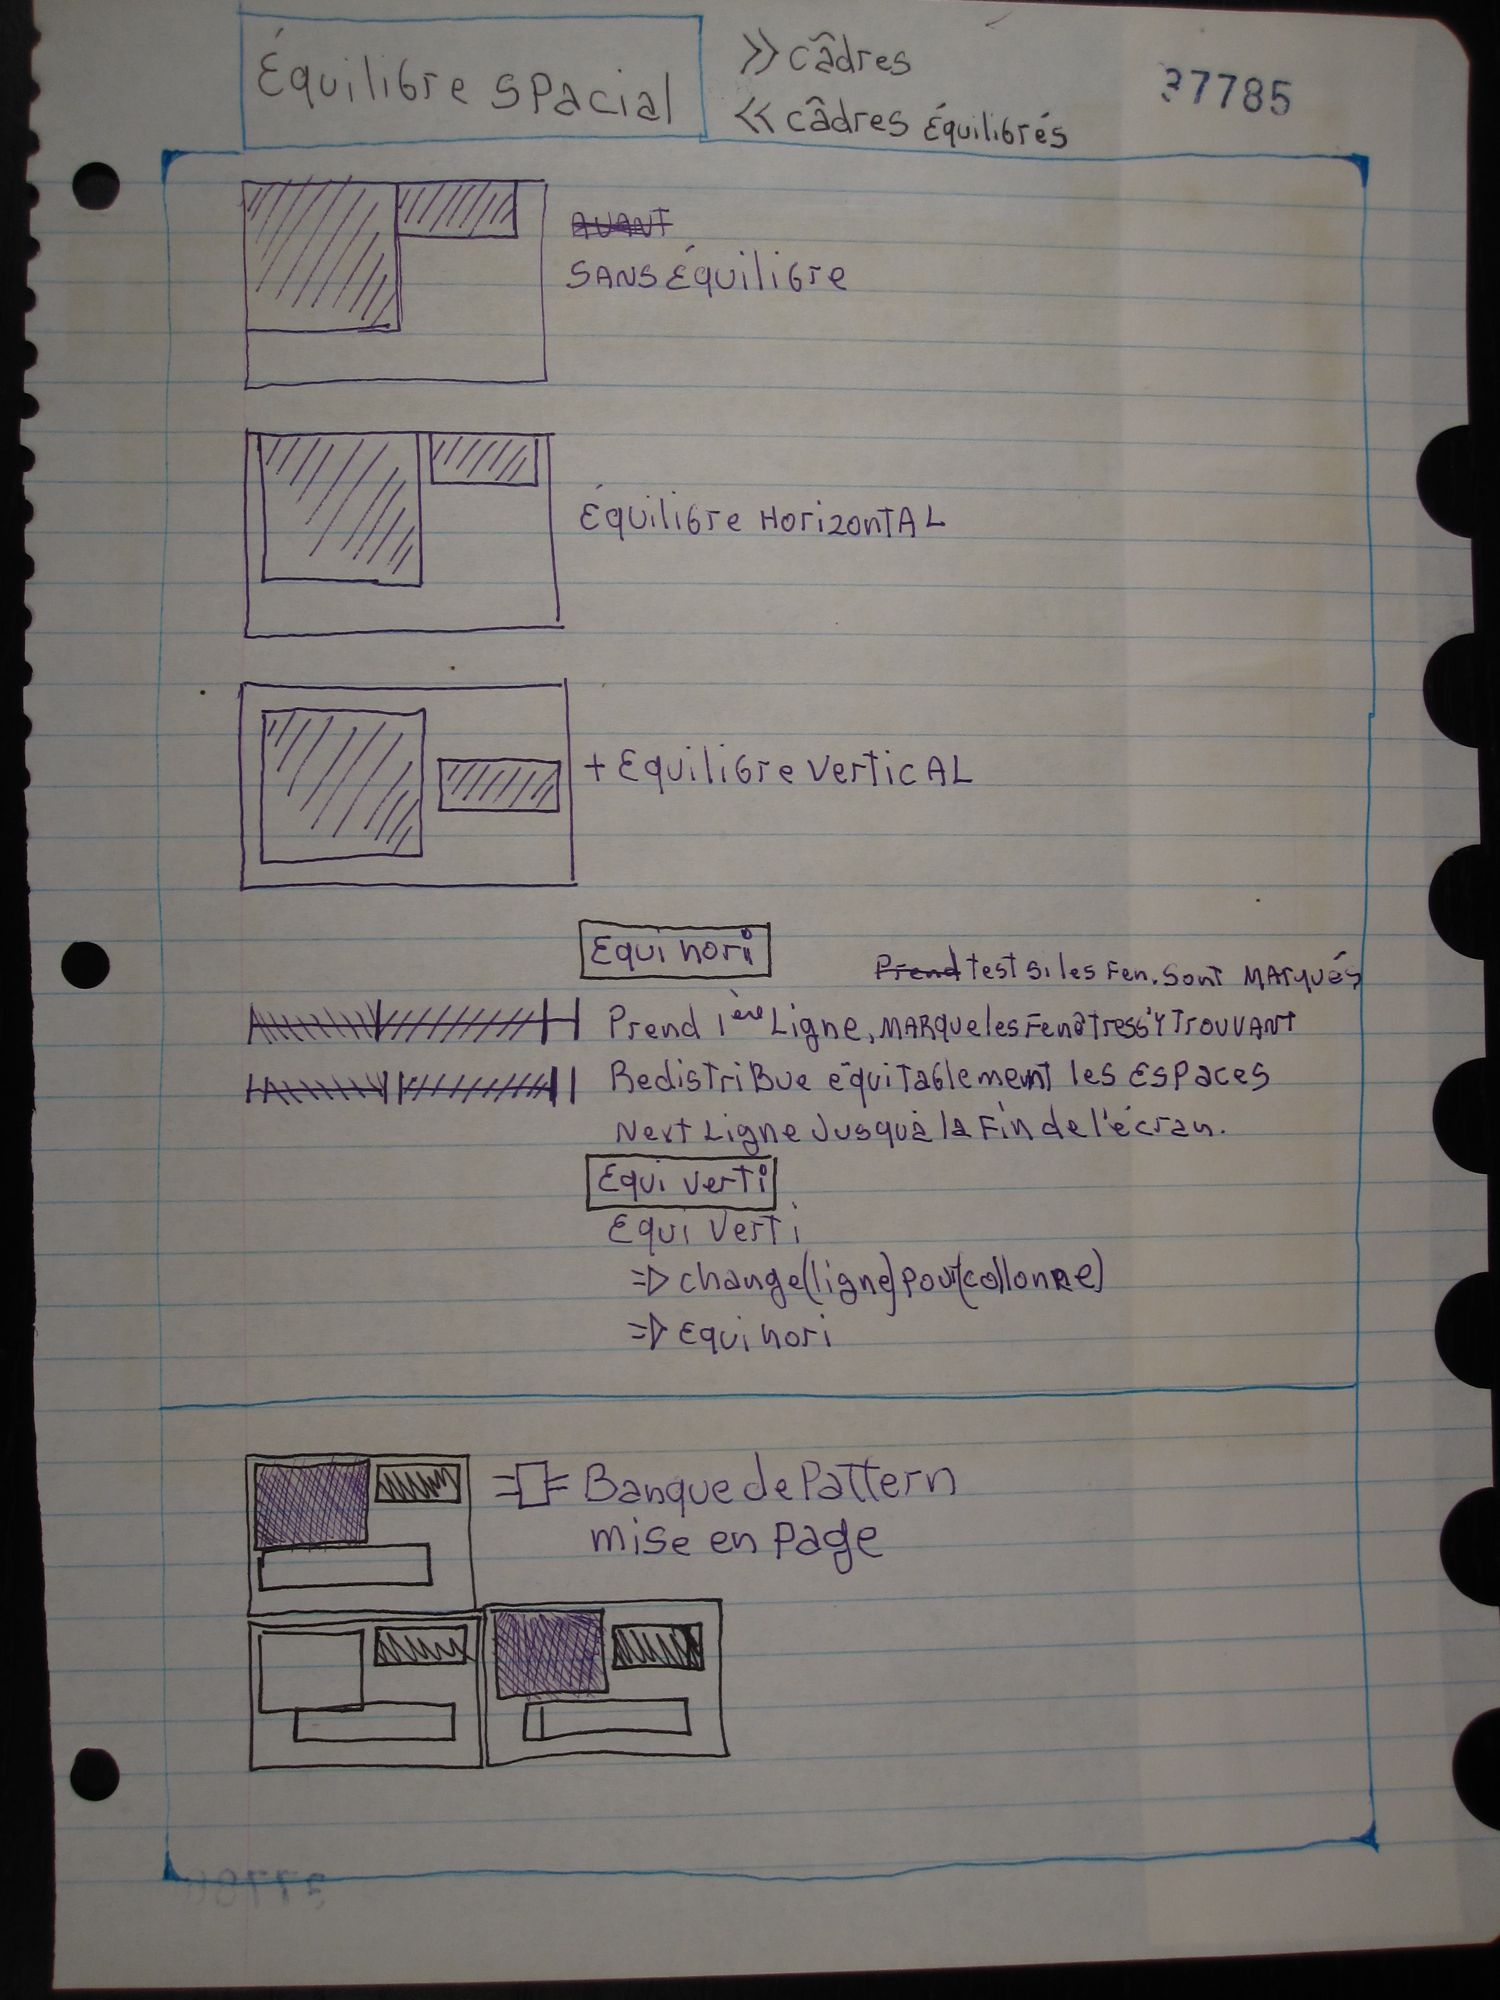 Équilibre spacial
>> câdres
<< câdres équilibrés
37785
AVANT
SANS Équilibre
Équilibre HorizontAL
+ Equilibre verticAL
Equi hori
Prend test si les Fen. sont MArqués
Prend 1ère Ligne, MARque les Fenêtres s'Y TrouvANT
Redistribue équitablement les Espaces
Next Ligne Jusqu'à la Fin de l'écran.
Equi verti
Equi Verti
=> change(ligne)pour(collonne)
=> Equi hori
Banque de Pattern
mise en page